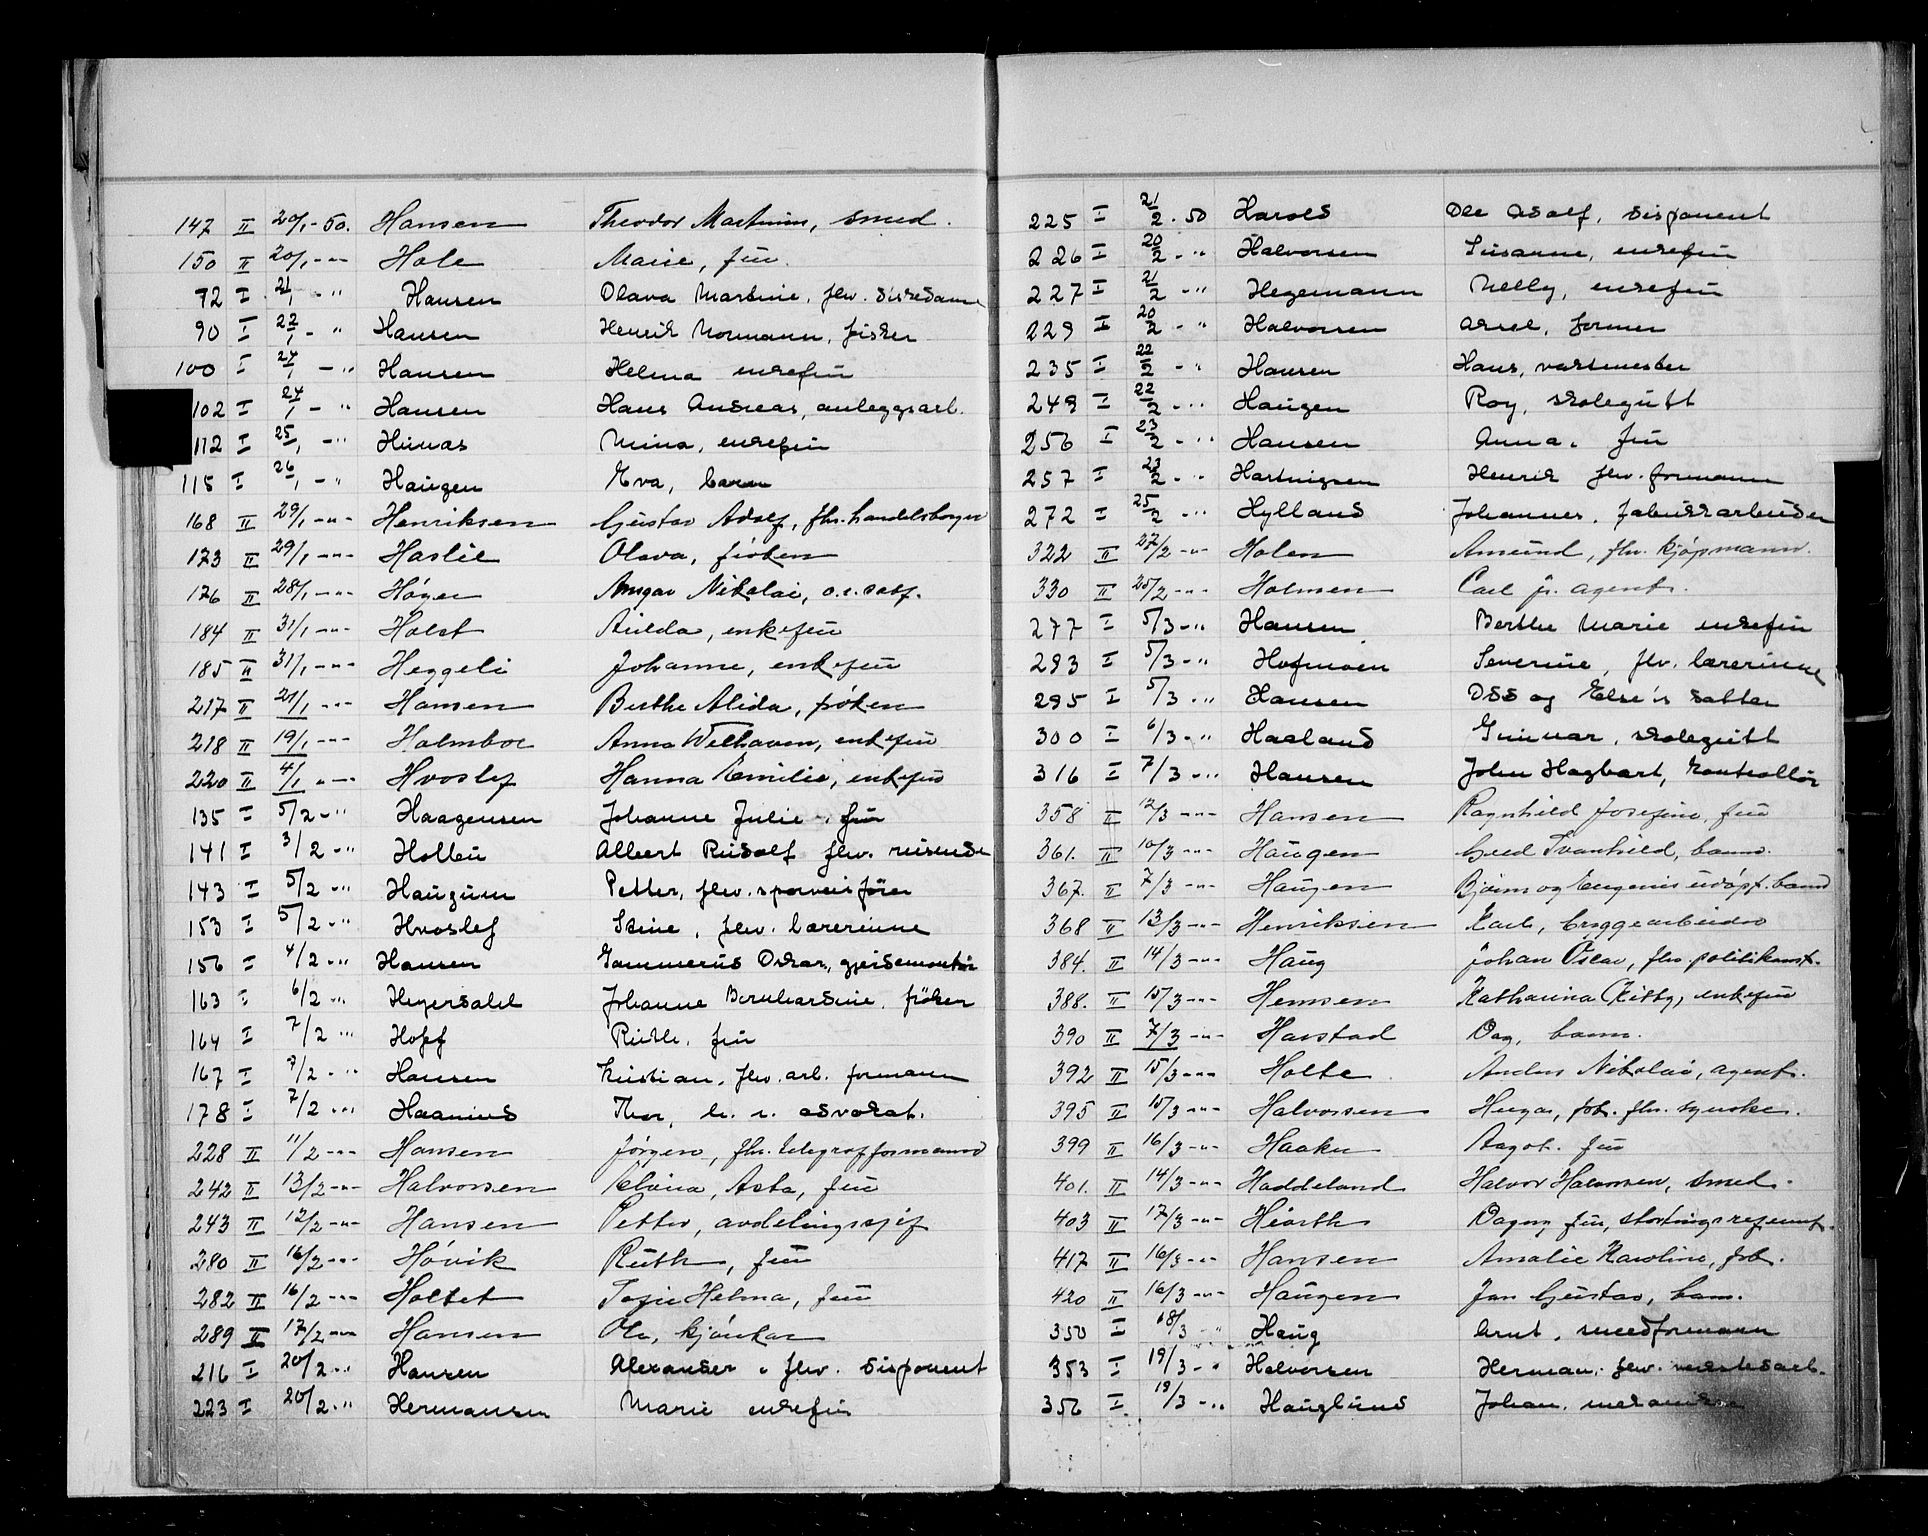 147 II 20/1-50. Hansen Theodor Martinius, smed.
150 II 20/1 -"- Hole Marie, fru.
72 I 21/1 - " Hansen Olava Martine, fhv. diskedame
90 I 22/1 - " Hansen Henrik Normann, fisker
100 I 24/1 - " Hansen Helma enkefru
102 I 24/1 - " Hansen Hans Andreas, anleggsarb.
112 I 25/1 - " Hunas Mina, enkefru
115 I 26/1 - " Haugen Eva, barn
168 II 29/1 -"- Henriksen Gustav Adolf, fhv. handelsborger
173 II 29/1 -"- Haslie Olava, frøken
176 II 28/1 -"- Høyer Ansgar Nikolai, o.r.sakf.
184 II 31/1 -"- Holst Aulda, enkefru
185 II 31/1 -"- Heggeli Johanne, enkefru
217 II 21/1 -"- Hansen Berthe Alida, frøken
218 II 19/1 -"- Holmboe Anna Welhaven, enkefru
220 II 4/1 -"- Hvoslef Hanna Emilie, enkefru
135 I 5/2 - " Haagensen Johanne Julie, fru
141 I 3/2 - " Holten Albert Rudolf fhv. reisende
143 I 5/2 - " Haugum Petter, fhv. sporveisfører
153 I 5/2 - " Hvoslef Stine, fhv. lærerinne
156 I 4/2 - " Hansen Oskar, gjeisemontør
163 I 6/2 - " Hegersahl Johanne Bernhardine, frøken
164 I 7/2 - " Hoff Ruth, fru
167 I 7/2 - " Hansen Kristian, fhv. arb. formann
178 I 7/2 - " Haanius Thor, h. r. advokat.
228 II 11/2 -"- Hansen Jørgen, fhv. telegrafformann
242 II 13/2 -"- Halvorsen Asta, fru
243 II 12/2 -"- Hansen Petter, avdelingssjef
280 II 16/2 -"- Høvik Ruth, fru
282 II 16/2 -"- Holtet Helma, fru
289 II 17/2 -"- Hansen Ole, kjørekar
216 I 20/2 - " Hansen Alexander, fhv. disponent
223 I 20/2 - " Hermansen Marie enkefru
225 I 21/2 - 50 Harold Ole Adolf, disponent
226 I 20/2 - " Halvorsen Susanne, enkefru
227 I 21/2 - " Hegemann Nelly, enkefru
229 I 20/2 - " Halvorsen Aksel, former
235 I 22/2 - " Hansen Hans, vaktmester
249 I 22/2 - " Haugen Roy, skolegutt
256 I 23/2 - " Hansen Anna, fru
257 I 23/2 - " Hartvigsen Henrik fhv. formann
272 I 25/2 - " Hylland Johannes, fabrikkarbeider
322 II 27/2 -"- Holen Amund, fhv. kjøpmann.
330 II 25/2 -"- Holmen Carl jr. agent.
277 I 5/3 - " Hansen Berthe Marie enkefru
293 I 5/3 - " Hofmoen Severine, fhv. lærerinne
295 I 5/3 - " Hansen Odd og Else's datter
300 I 6/3 - " Haaland Gunnar, skolegutt
316 I 7/3 - " Hansen John Hagbart, kontrollør
358 II 12/3 -"- Hansen Ragnhild Josefine, fru
361. II 10/3 -"- Haugen Gerd Svanhild, barn.
367. II 7/3 -"- Haugen Bjørn og Eugenies udøpt. barn
368 II 13/3 -"- Henriksen Karl, bryggearbeider
384. II 14/3 -"- Haug Johan Oscar, fhv. politikonst.
388. II 15/3 -"- Hemsen Katharina (Kitty), enkefru
390 II 7/3 -"- Harstad Dag, barn.
392 II 15/3 -"- Holte Anders Nikolai, agent.
395 II 15/3 -"- Halvorsen Helga, frk. fhv. syerske.
399 II 16/3 -"- Haaker Aagot. fru
401. II 14/3 -"- Haddeland Halvor Halvorsen, smed.
403 II 17/3 -"- Hiorth Dagny fru, stortingsreferent.
417 II 16/3 -"- Hansen Amalie Karoline, frk.
420 II 16/3 -"- Haugen Jan Gustav, barn.
350 I 18/3 - " Haug Arnt, smedformann
353 I 19/3 - " Halvorsen Herman, fhv. verkstedsarb.
356 I 19/3 - " Hauglund Johan, mekaniker